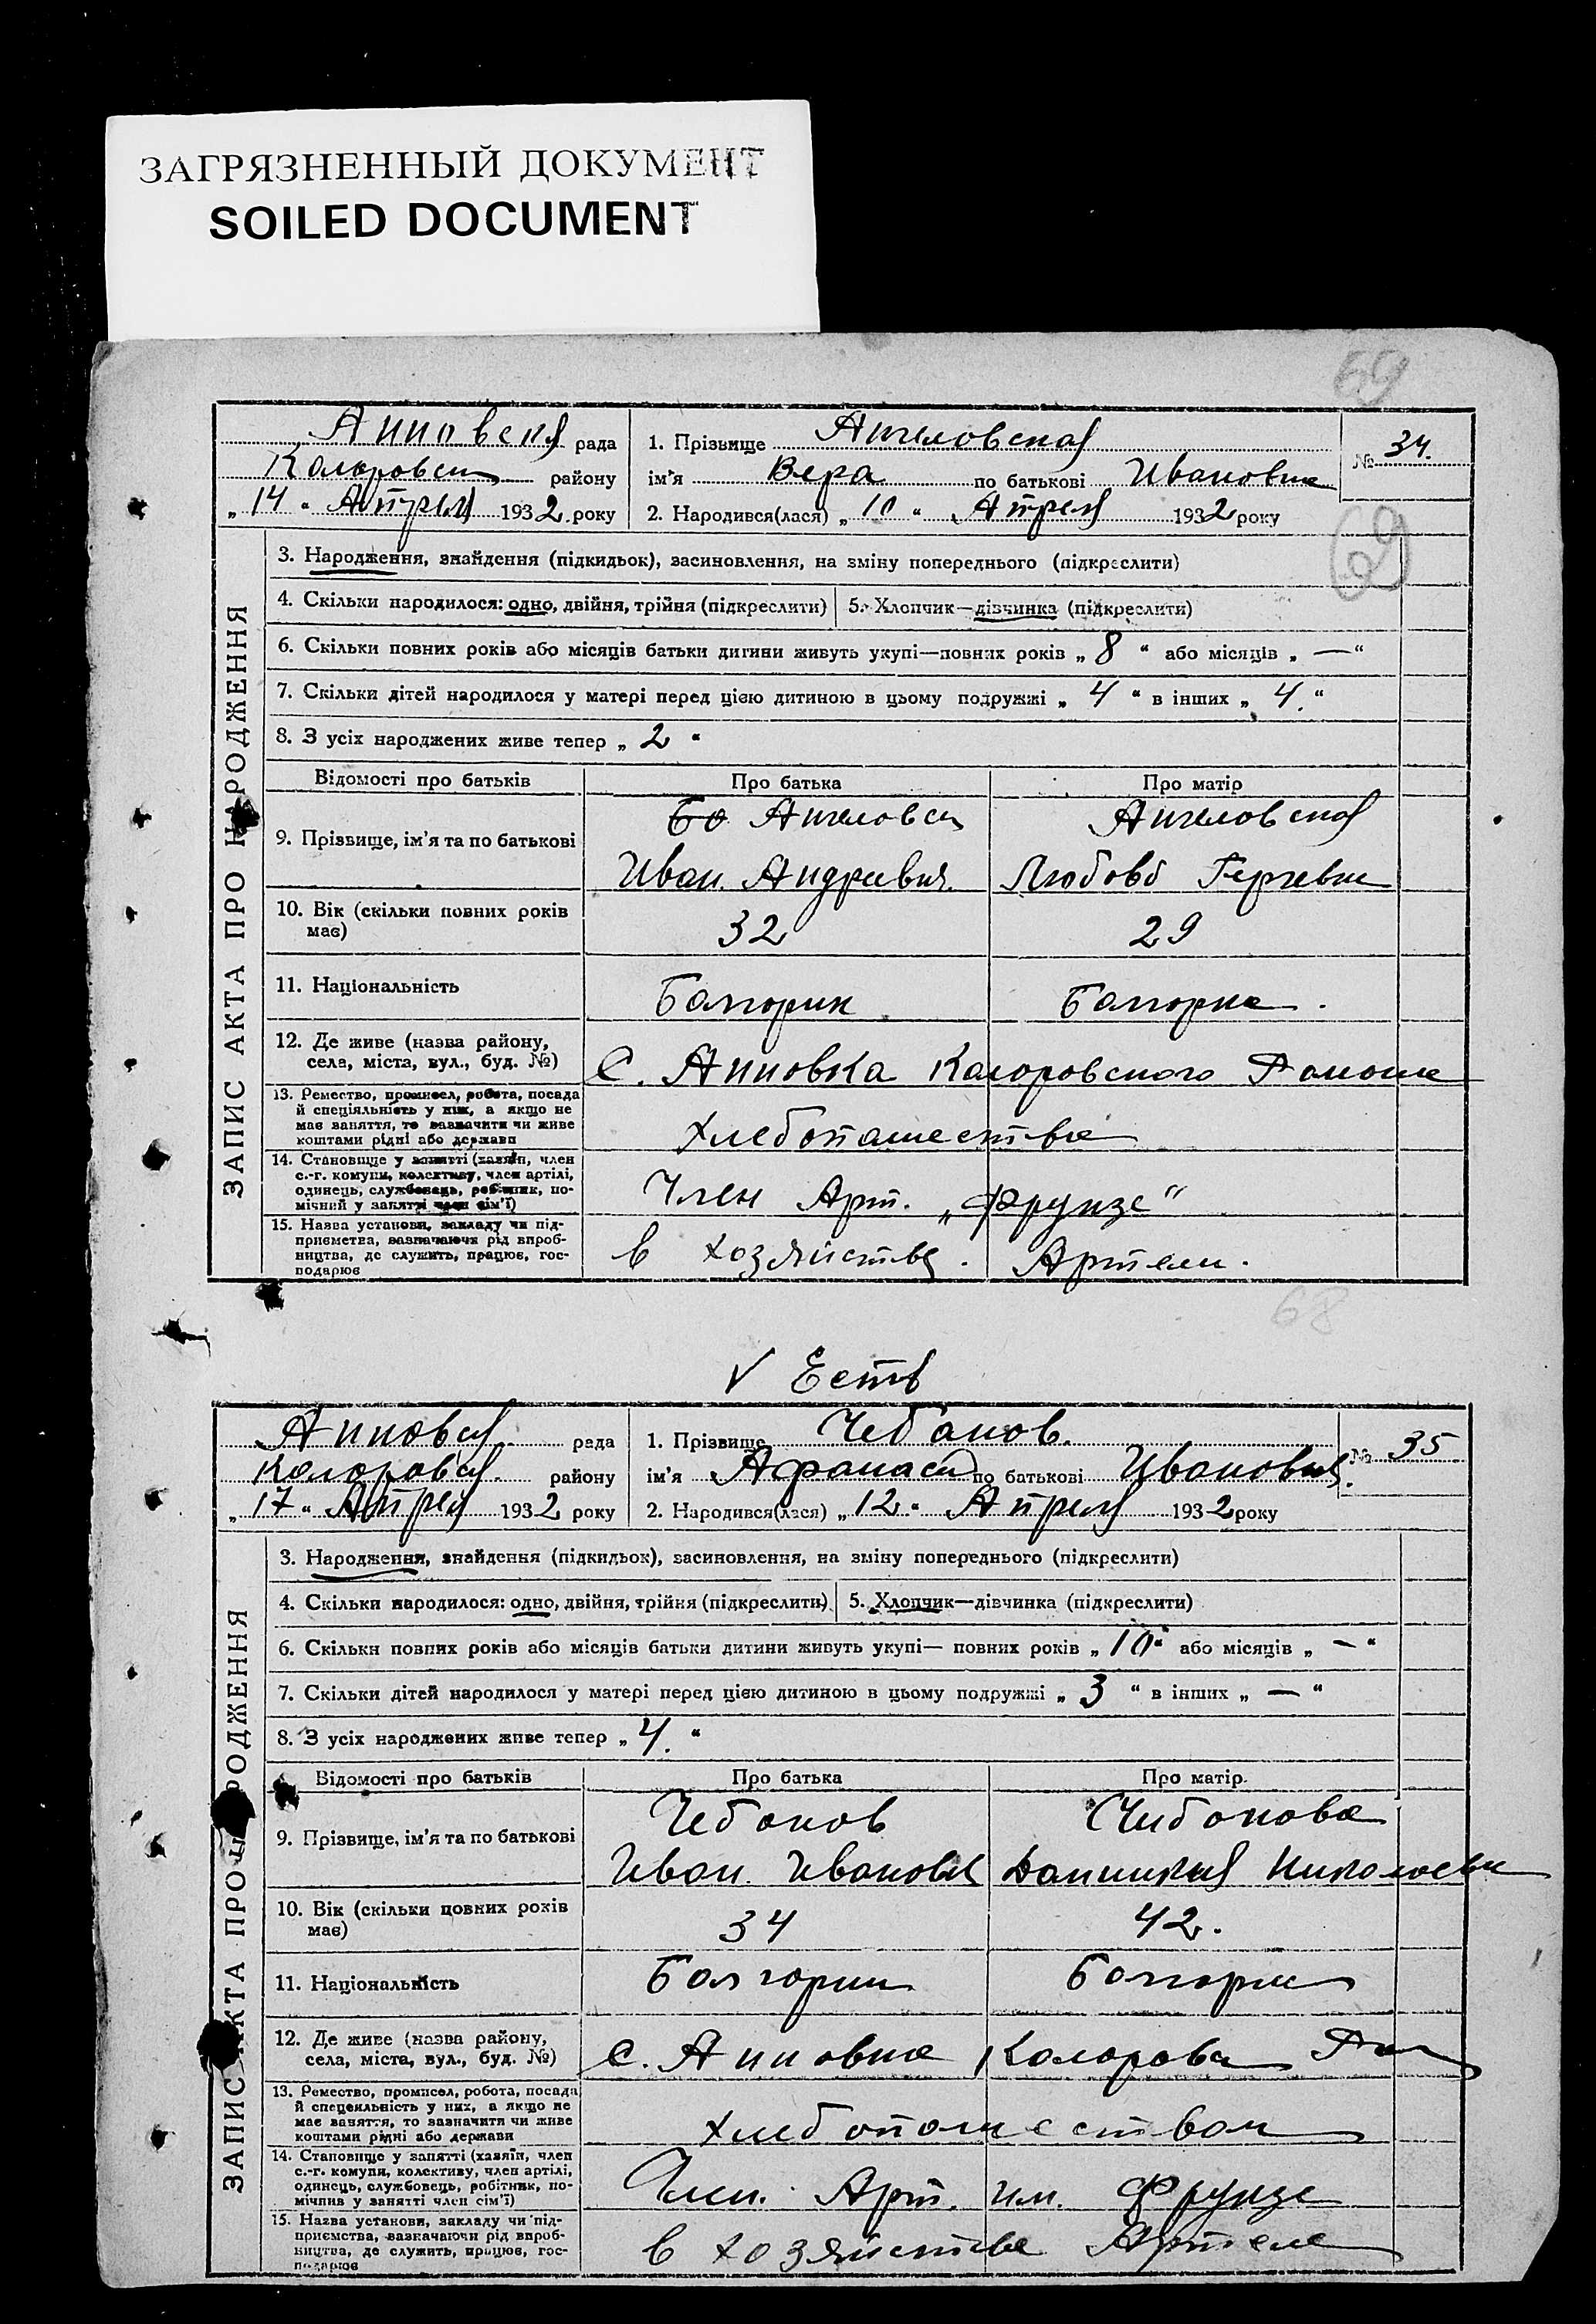 ЗАГРЯЗНЕННЫЙ ДОКУМЕНТ
SOILED DOCUMENT
69
ЗАПИС АКТА ПРО НАРОДЖЕННЯ
Анновская рада
Коларовск району
„ 14 " Апреля 1932 року
1. Прізвище Ангеловская
ім'я Вера по батькові Ивановна
2. Народився(лася) „ 10 " Апреля 1932 року
№ 34.
69
3. Народження, знайдення (підкидьок), засиновлення, на зміну попереднього (підкреслити)
4. Скільки народилося: одно, двійня, трійня (підкреслити) 5. Хлопчик—дівчинка (підкреслити)
6. Скільки повних років або місяців батьки дитини живуть укупі—повних років „ 8 " або місяців „ — "
7. Скільки дітей народилося у матері перед цією дитиною в цьому подружжі „ 4 " в інших „ 4. "
8. З усіх народжених живе тепер „ 2 "
Відомості про батьків Про батька Про матір
9. Прізвище, ім'я та по батькові
Ангеловск Ангеловская
Иван. Андреевич. Любовь
10. Вік (скільки повних років має) 32 29
11. Національність Болгорин Болгорка.
12. Де живе (назва району, села, міста, вул., буд. №) С. Анновка Коларовского
13. Ремество, промисел, робота, посада
й спеціяльність у них, а якщо не
має заняття, то зазначити чи живе
коштами рідні або держави
Хлебопашество
14. Становище у занятті (хазяїн, член
с.-г. комуни, колективу, член артілі,
одинець, службовець, робітник, по-
мічний у занятті член сім'ї)
Член Арт. „Фрунзе"
15. Назва установи, закладу чи під-
приємства, зазначаючи рід вироб-
ництва, де служить, працює, гос-
подарює
в хозяйстве. Артели.
68
V Есть
ЗАПИС АКТА ПРО НАРОДЖЕННЯ
Анновск рада
Коларовск. району
„ 17 " Апреля 1932 року
1. Прізвище Чебанов.
ім'я Афанасий по батькові Иванович.
2. Народився(лася) „ 12. " Апреля 1932 року
№ 35
3. Народження, знайдення (підкидьок), засиновлення, на зміну попереднього (підкреслити)
4. Скільки народилося: одно, двійня, трійня (підкреслити) 5. Хлопчик—дівчинка (підкреслити)
6. Скільки повних років або місяців батьки дитини живуть укупі— повних років „ 10 " або місяців „ — "
7. Скільки дітей народилося у матері перед цією дитиною в цьому подружжі „ 3 " в інших „ — "
8. З усіх народжених живе тепер „ 4. "
Відомості про батьків Про батька Про матір
9. Прізвище, ім'я та по батькові
Чебонов Чибонова
Иван. Иванович
10. Вік (скільки повних років має) 34 42.
11. Національність Болгорин Болгорк
12. Де живе (назва району, села, міста, вул., буд. №) С. Анновка Коларовск
13. Ремество, промисел, робота, посада
й спеціяльність у них, а якщо не
має заняття, то зазначити чи живе
коштами рідні або держави
Хлебопошеством
14. Становище у занятті (хазяїн, член
с.-г. комуни, колективу, член артілі,
одинець, службовець, робітник, по-
мічнив у занятті член сім'ї)
Член. Арт. им. Фрунзе
15. Назва установи, закладу чи під-
приємства, зазначаючи рід вироб-
ництва, де служить, працює, гос-
подарює
в хозяйстве Артели